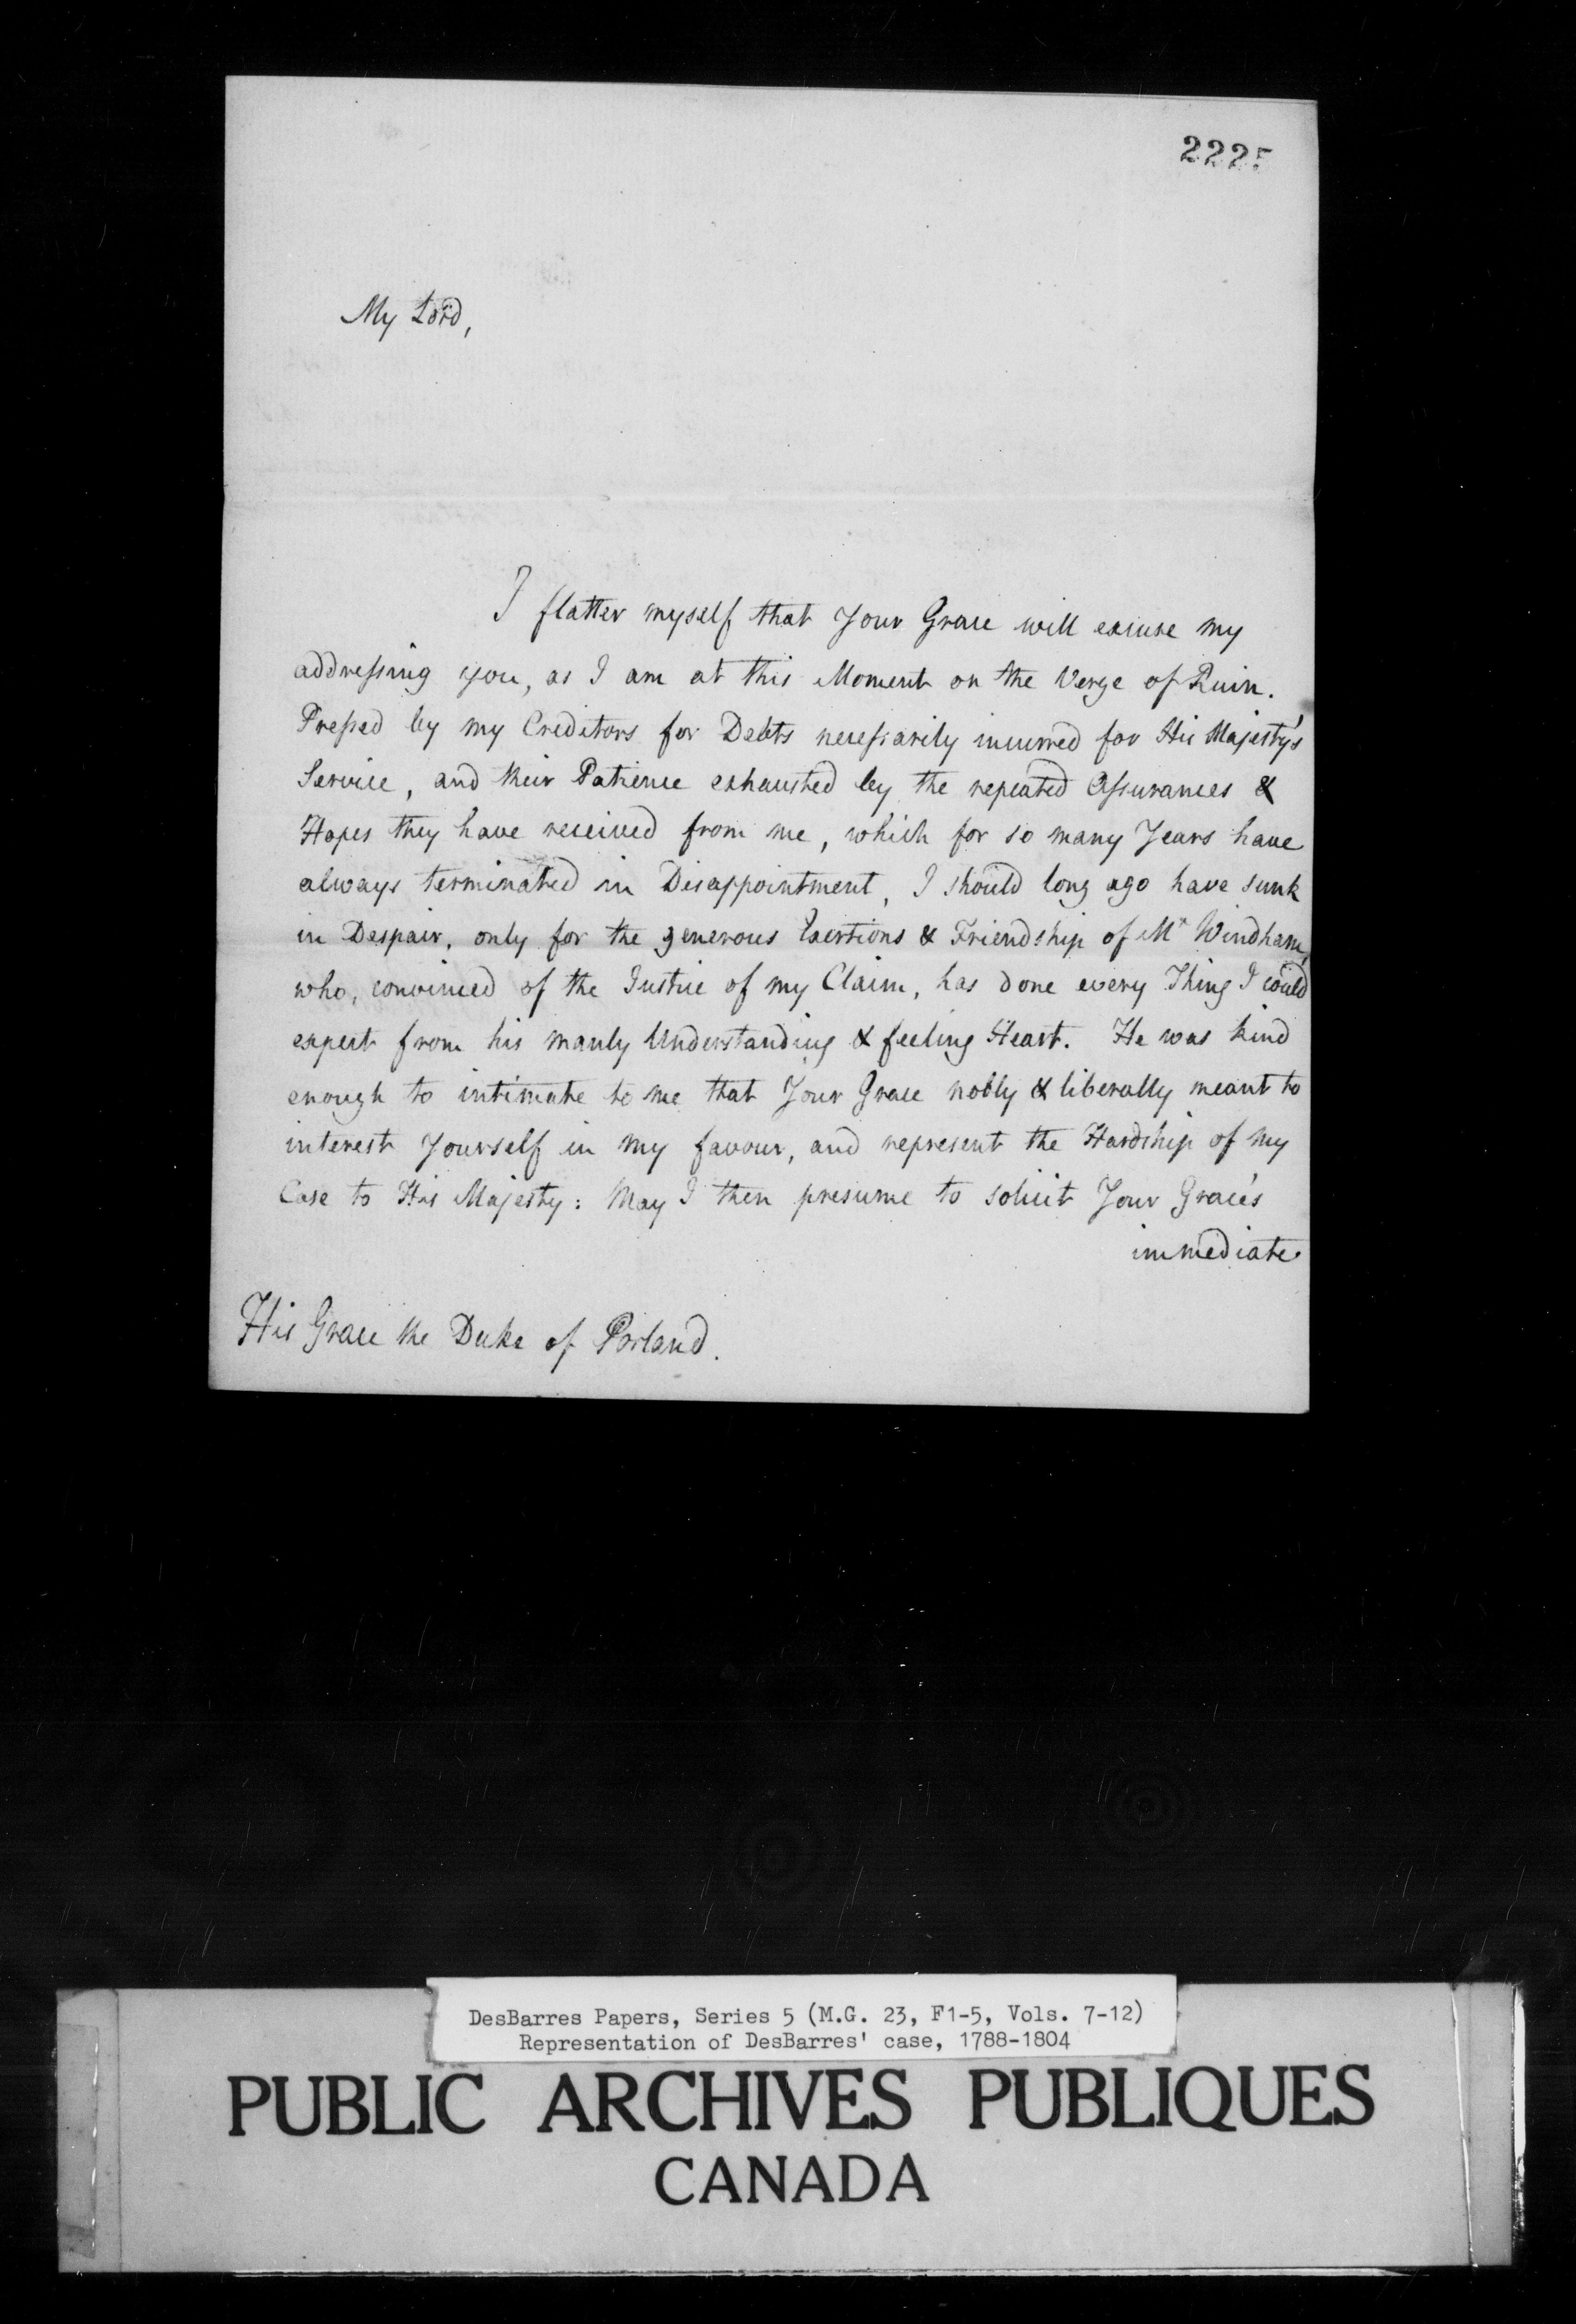 2225
My Lord,
I flatter myself that Your Grace will excuse my
addressing you, as I am at this Moment on the Verge of Ruin.
Pressed by my Creditors for Debts necessarily incurred for His Majesty's
Service, and their Patience exhausted by the repeated Assurances &
Hopes they have received from me, which for so many Years have
always terminated in Disappointment, I should long ago have sunk
in Despair, only for the generous Exertions & Friendship of Mr Windham,
who, convinced of the Justice of my Claim, has done every Thing I could
expect from his manly Understanding & feeling Heart. He was kind
enough to intimate to me that Your Grace nobly & liberally meant to
interest Yourself in my favour, and represent the Hardship of my
Case to His Majesty: May I then presume to solicit Your Grace's
immediate
His Grace the Duke of Porland.
DesBarres Papers, Series 5 (M.G. 23, F1-5, Vols. 7-12)
Representation of DesBarres' case, 1788-1804
PUBLIC ARCHIVES PUBLIQUES
CANADA